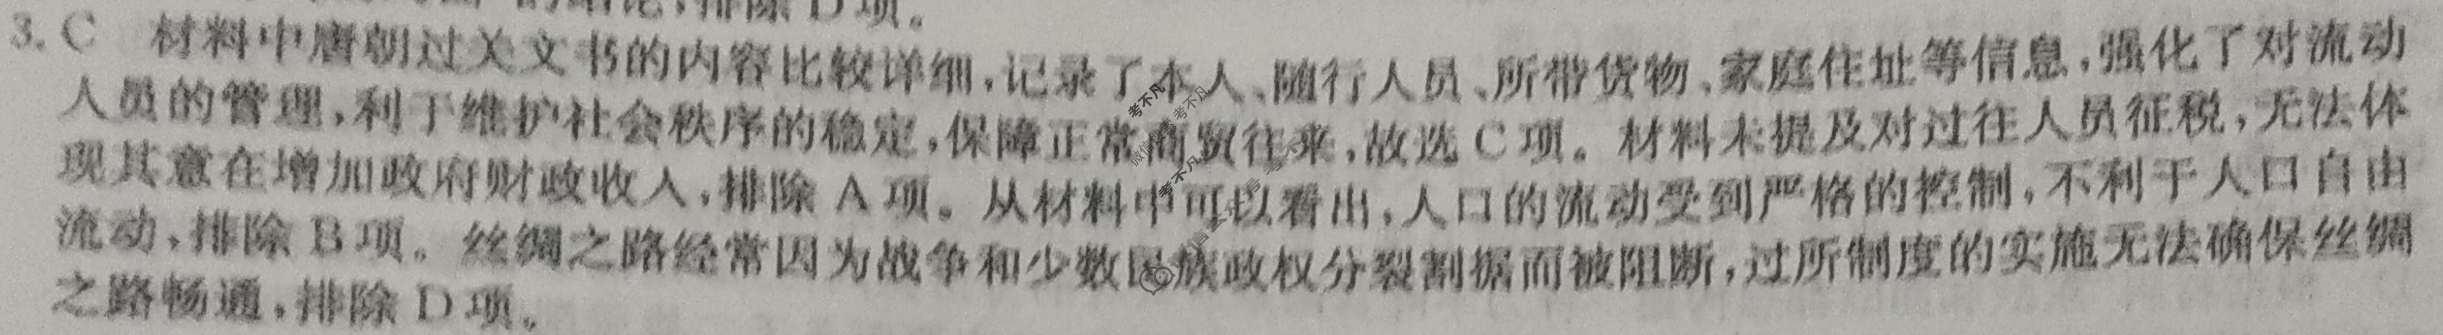 排除D项。
3. C　材料中唐朝过关文书的内容比较详细,记录了本人、随行人员、所带货物、家庭住址等信息,强化了对流动
人员的管理,利于维护社会秩序的稳定,保障正常商贸往来,故选C项。材料未提及对过往人员征税,无法体
现其意在增加政府财政收入,排除A项。从材料中可以看出,人口的流动受到严格的控制,不利于人口自由
流动,排除B项。丝绸之路经常因为战争和少数民族政权分裂割据而被阻断,过所制度的实施无法确保丝绸
之路畅通,排除D项。
考不凡
考不凡
考不凡